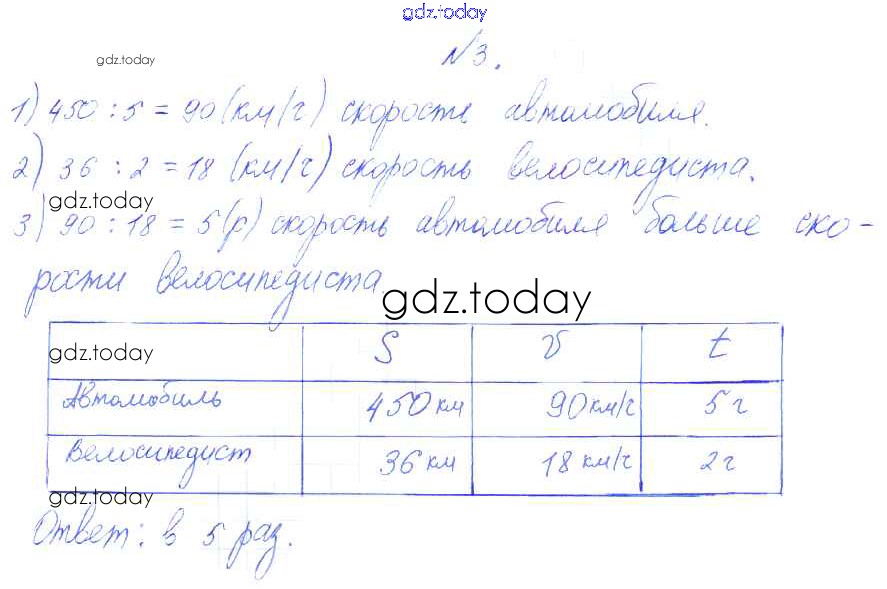 gdz.today
№3.
gdz.today
1) 450 : 5 = 90 (км/ч) скорость автомобиля.
2) 36 : 2 = 18 (км/ч) скорость велосипедиста.
gdz.today
3) 90 : 18 = 5 (р) скорость автомобиля больше ско-
рости велосипедиста
gdz.today
gdz.today S V t
Автомобиль 450 км 90 км/ч 5 ч
Велосипедист 36 км 18 км/ч 2 ч
gdz.today
Ответ: в 5 раз.